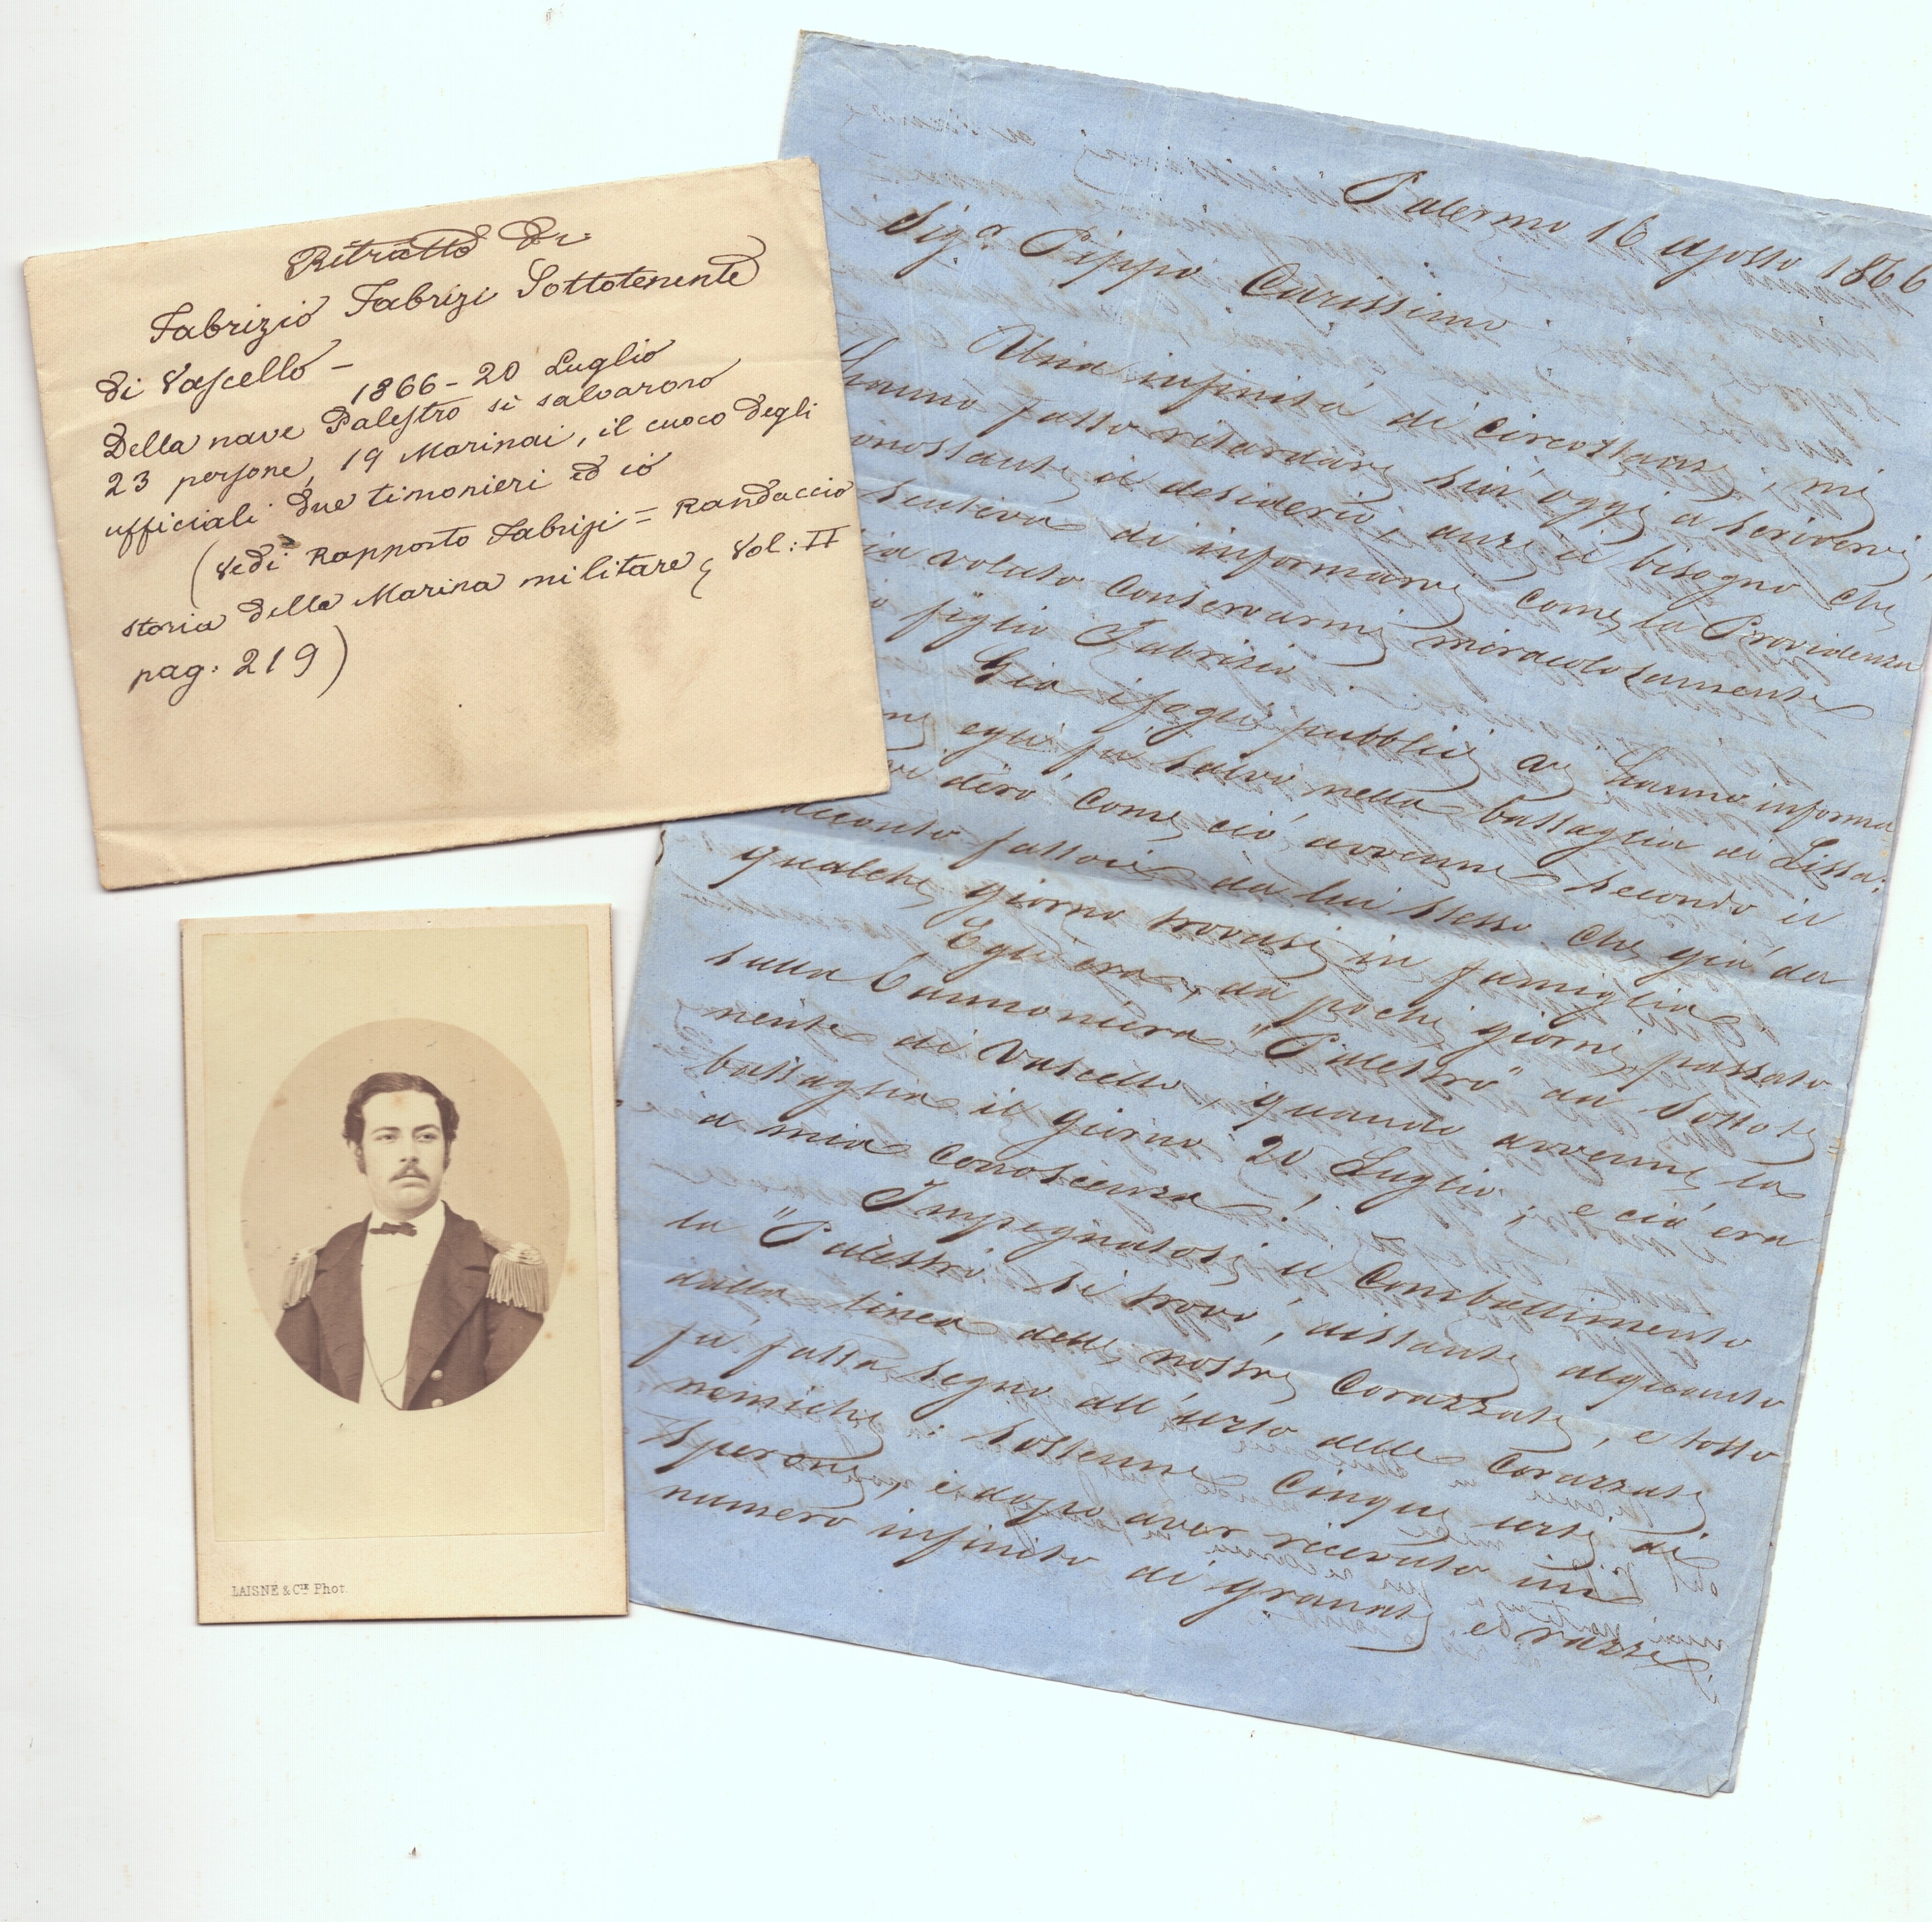 Ritratto di
Fabrizio Fabrizi Sottotenente
di Vascello –
1866 – 20 Luglio
Della nave Palestro si salvarono
23 persone, 19 Marinai, il cuoco degli
ufficiali due timonieri ed io
(Vedi Rapporto Fabrizi = Randaccio
storia della Marina militare, Vol: II
pag: 219)
LAISNÉ & CIE Phot.
Palermo 16 agosto 1866
Sigr Pippo Carissimo
Una infinità di circostanze, mi
hanno fatto ritardare sin'oggi a scrivervi,
nonostante il desiderio, anzi il bisogno che
sentiva di informarvi come la Providenza
voluto conservarmi miracolosamente
figlio Fabrizio.
Già i fogli pubblici hanno informa
egli fù salvo nella battaglia di Lissa;
dirò come ciò avvenne secondo il
racconto fattoci da lui stesso, che già da
qualche giorno trovasi in famiglia.
Egli era, da pochi giorni, passato
sulla Cannoniera "Palestro" da Sottote=
nente di Vascello, quando avvenne la
battaglia il giorno 20 Luglio; e ciò era
a mia conoscenza!
Impegnatosi il Combattimento
la "Palestro" si trovò, distante alquanto
dalla linea delle nostre Corazzate, e tosto
fù fatta segno all'urto delle Corazzate
nemiche: sostenne Cinque urti di
Sperone, e dopo aver ricevuto un
numero infinito di granate e razzi